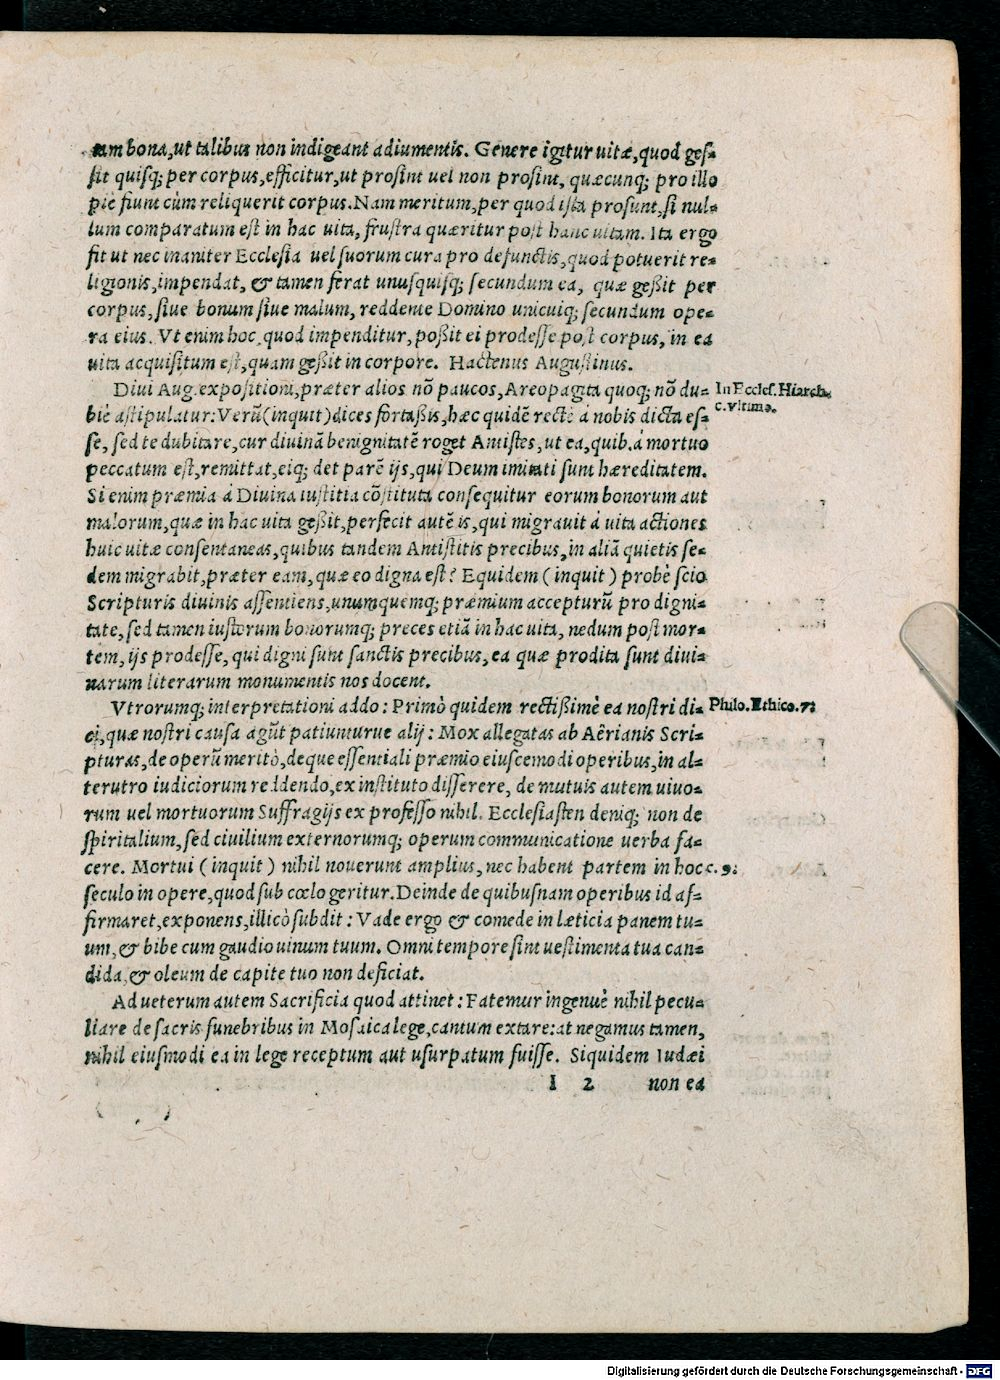 tam bona, ut talibus non indigeant adiumentis. Genere igitur uitæ, quod geſ⸗
ſit quiſq; per corpus, efficitur, ut proſint uel non proſint, quæcunq; pro illo
piè fiunt cùm reliquerit corpus. Nam meritum, per quod iſta proſunt, ſi nul⸗
lum comparatum eſt in hac uita, fruſtra quæritur poſt hanc uitam. Ita ergo
fit ut nec inaniter Eccleſia uel ſuorum cura pro defunctis, quod potuerit re⸗
ligionis, impendat, & tamen ferat unuſquiſq; ſecundum ea, quæ geßit per
corpus, ſiue bonum ſiue malum, reddente Domino unicuiq; ſecundum ope⸗
ra eius. Vt enim hoc quod impenditur, poßit ei prodeſſe poſt corpus, in ea
uita acquiſitum eſt, quam geßit in corpore. Hactenus Auguſtinus.
Diui Aug. expoſitioni, præter alios nō paucos, Areopagita quoq; nō du⸗
In Eccleſ. Hiarch.
c. vltimo.
biè aſtipulatur: Verū (inquit) dices fortaßis, hæc quidē rectè à nobis dicta eſ⸗
ſe, ſed te dubitare, cur diuinā benignitatē roget Antiſtes, ut ea, quib. à mortuo
peccatum eſt, remittat, eiq; det parē ijs, qui Deum imitati ſunt hæreditatem.
Si enim præmia à Diuina iuſtitia cōſtituta conſequitur eorum bonorum aut
malorum, quæ in hac uita geßit, perfecit autē is, qui migrauit à uita actiones
huic uitæ conſentaneas, quibus tandem Antiſtitis precibus, in aliā quietis ſe⸗
dem migrabit, præter eam, quæ eo digna eſt? Equidem (inquit) probè ſcio
Scripturis diuinis aſſentiens, unumquemq; præmium accepturū pro digni⸗
tate, ſed tamen iuſtorum bonorumq; preces etiā in hac uita, nedum poſt mor⸗
tem, ijs prodeſſe, qui digni ſunt ſanctis precibus, ea quæ prodita ſunt diui⸗
narum literarum monumentis nos docent.
Vtrorumq; interpretationi addo: Primò quidem rectißimè ea noſtri di⸗
Philo. Ethico. 7:
ci, quæ noſtri cauſa agūt patiunturue alij: Mox allegatas ab Aërianis Scri⸗
pturas, de operū meritò, deque eſſentiali præmio eiuſcemodi operibus, in al⸗
terutro iudiciorum reddendo, ex inſtituto diſſerere, de mutuis autem uiuo⸗
rum uel mortuorum Suffragijs ex profeſſo nihil. Eccleſiaſten deniq; non de
ſpiritalium, ſed ciuilium externorumq; operum communicatione uerba fa⸗
cere. Mortui (inquit) nihil nouerunt amplius, nec habent partem in hoc
c. 9:
ſeculo in opere, quod ſub cœlo geritur. Deinde de quibuſnam operibus id af⸗
firmaret, exponens, illicò ſubdit: Vade ergo & comede in læticia panem tu⸗
um, & bibe cum gaudio uinum tuum. Omni tempore ſint ueſtimenta tua can⸗
dida, & oleum de capite tuo non deficiat.
Ad ueterum autem Sacrificia quod attinet: Fatemur ingenuè nihil pecu⸗
liare de ſacris funebribus in Moſaica lege, cantum extare: at negamus tamen,
nihil eiuſmodi ea in lege receptum aut uſurpatum fuiſſe. Siquidem Iudæi
I 2 non ea
Digitalisierung gefördert durch die Deutsche Forschungsgemeinschaft - DFG